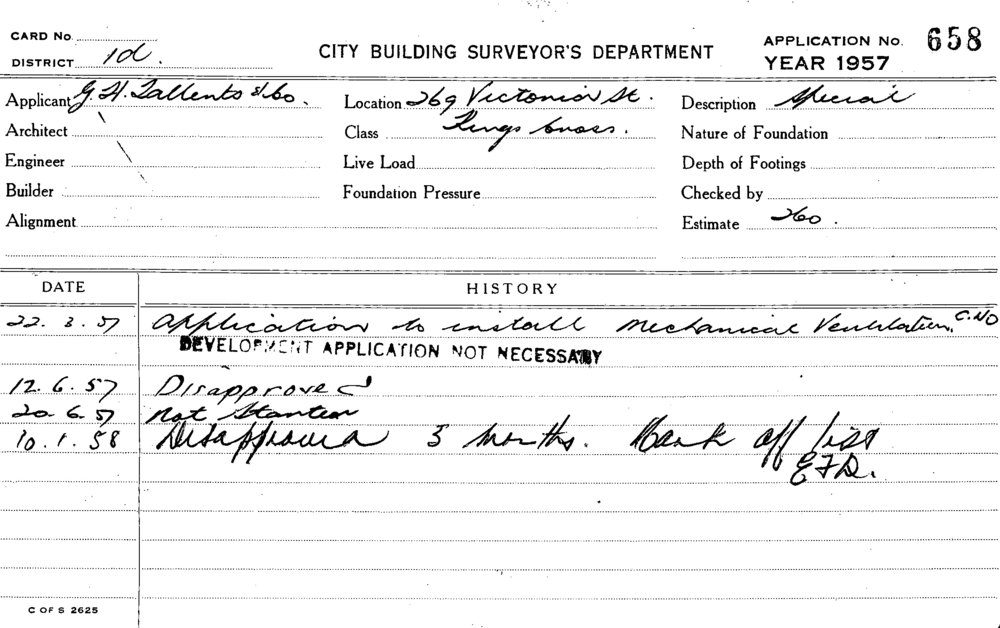 CARD No.
DISTRICT 1d.
CITY BUILDING SURVEYOR'S DEPARTMENT
APPLICATION No. 658
YEAR 1957
Applicant G. H. Tallents & Co. Location 269 Victoria St. Description Special
Architect Class Kings Cross. Nature of Foundation
Engineer Live Load Depth of Footings
Builder Foundation Pressure Checked by
Alignment Estimate 260.
DATE HISTORY
22. 3. 57 Application to install Mechanical Ventilation, C.NO
DEVELOPMENT APPLICATION NOT NECESSARY
12. 6. 57 Disapproved
20. 6. 57 Not Started
10. 1. 58 Disapproved 3 months. Mark off list
C OF S 2625